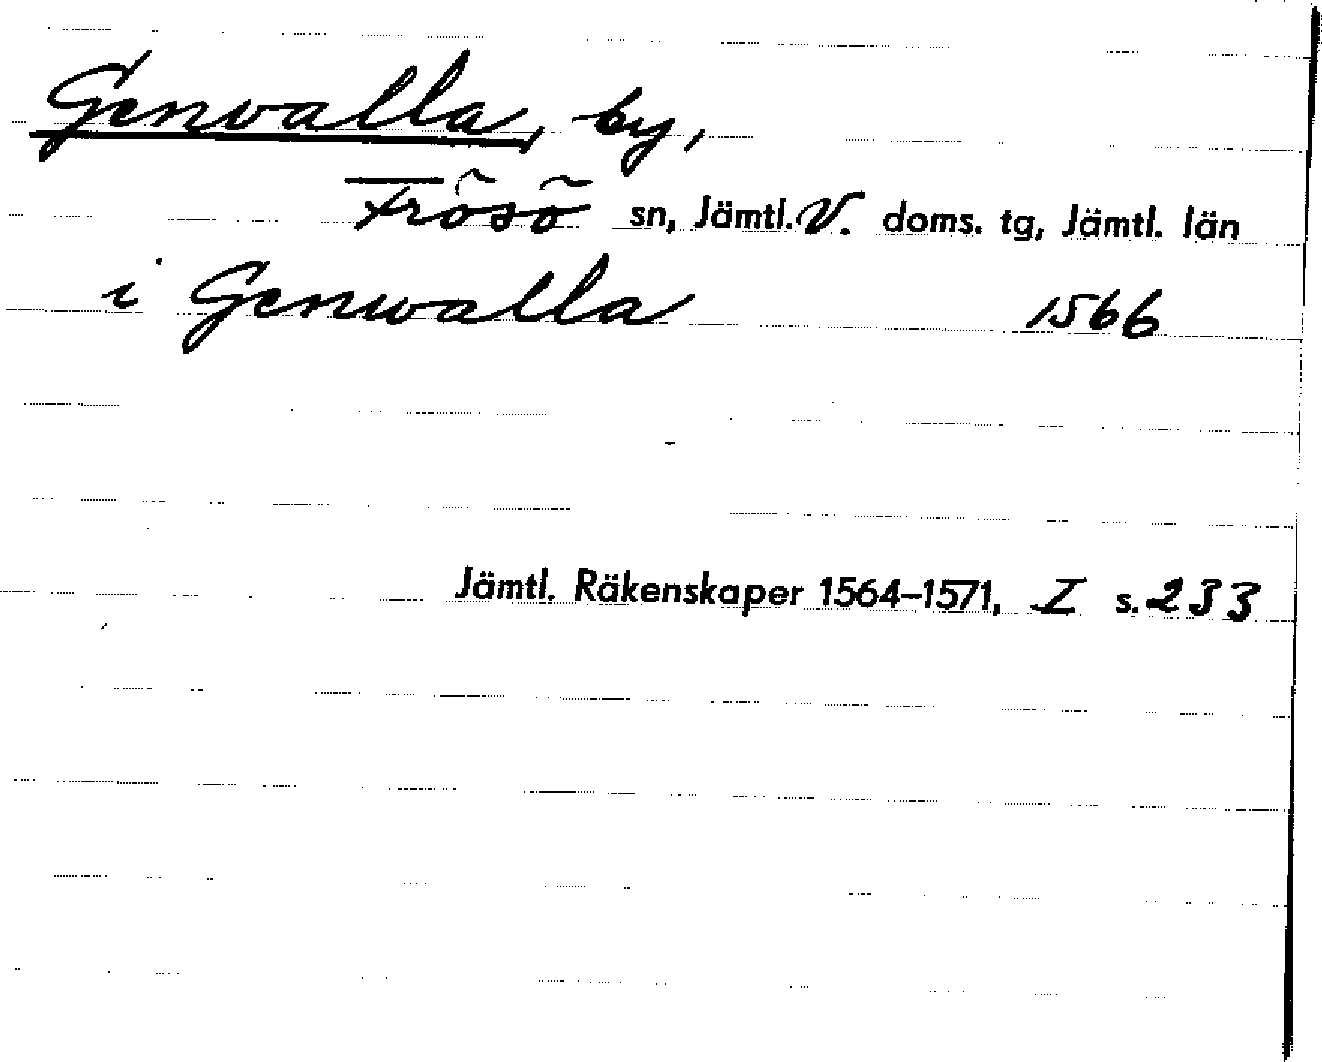 Genvalla, by,
Frösö sn, Jämtl. V. doms. tg, Jämtl. län
i Genwalla 1566
Jämtl. Räkenskaper 1564–1571, I s. 233